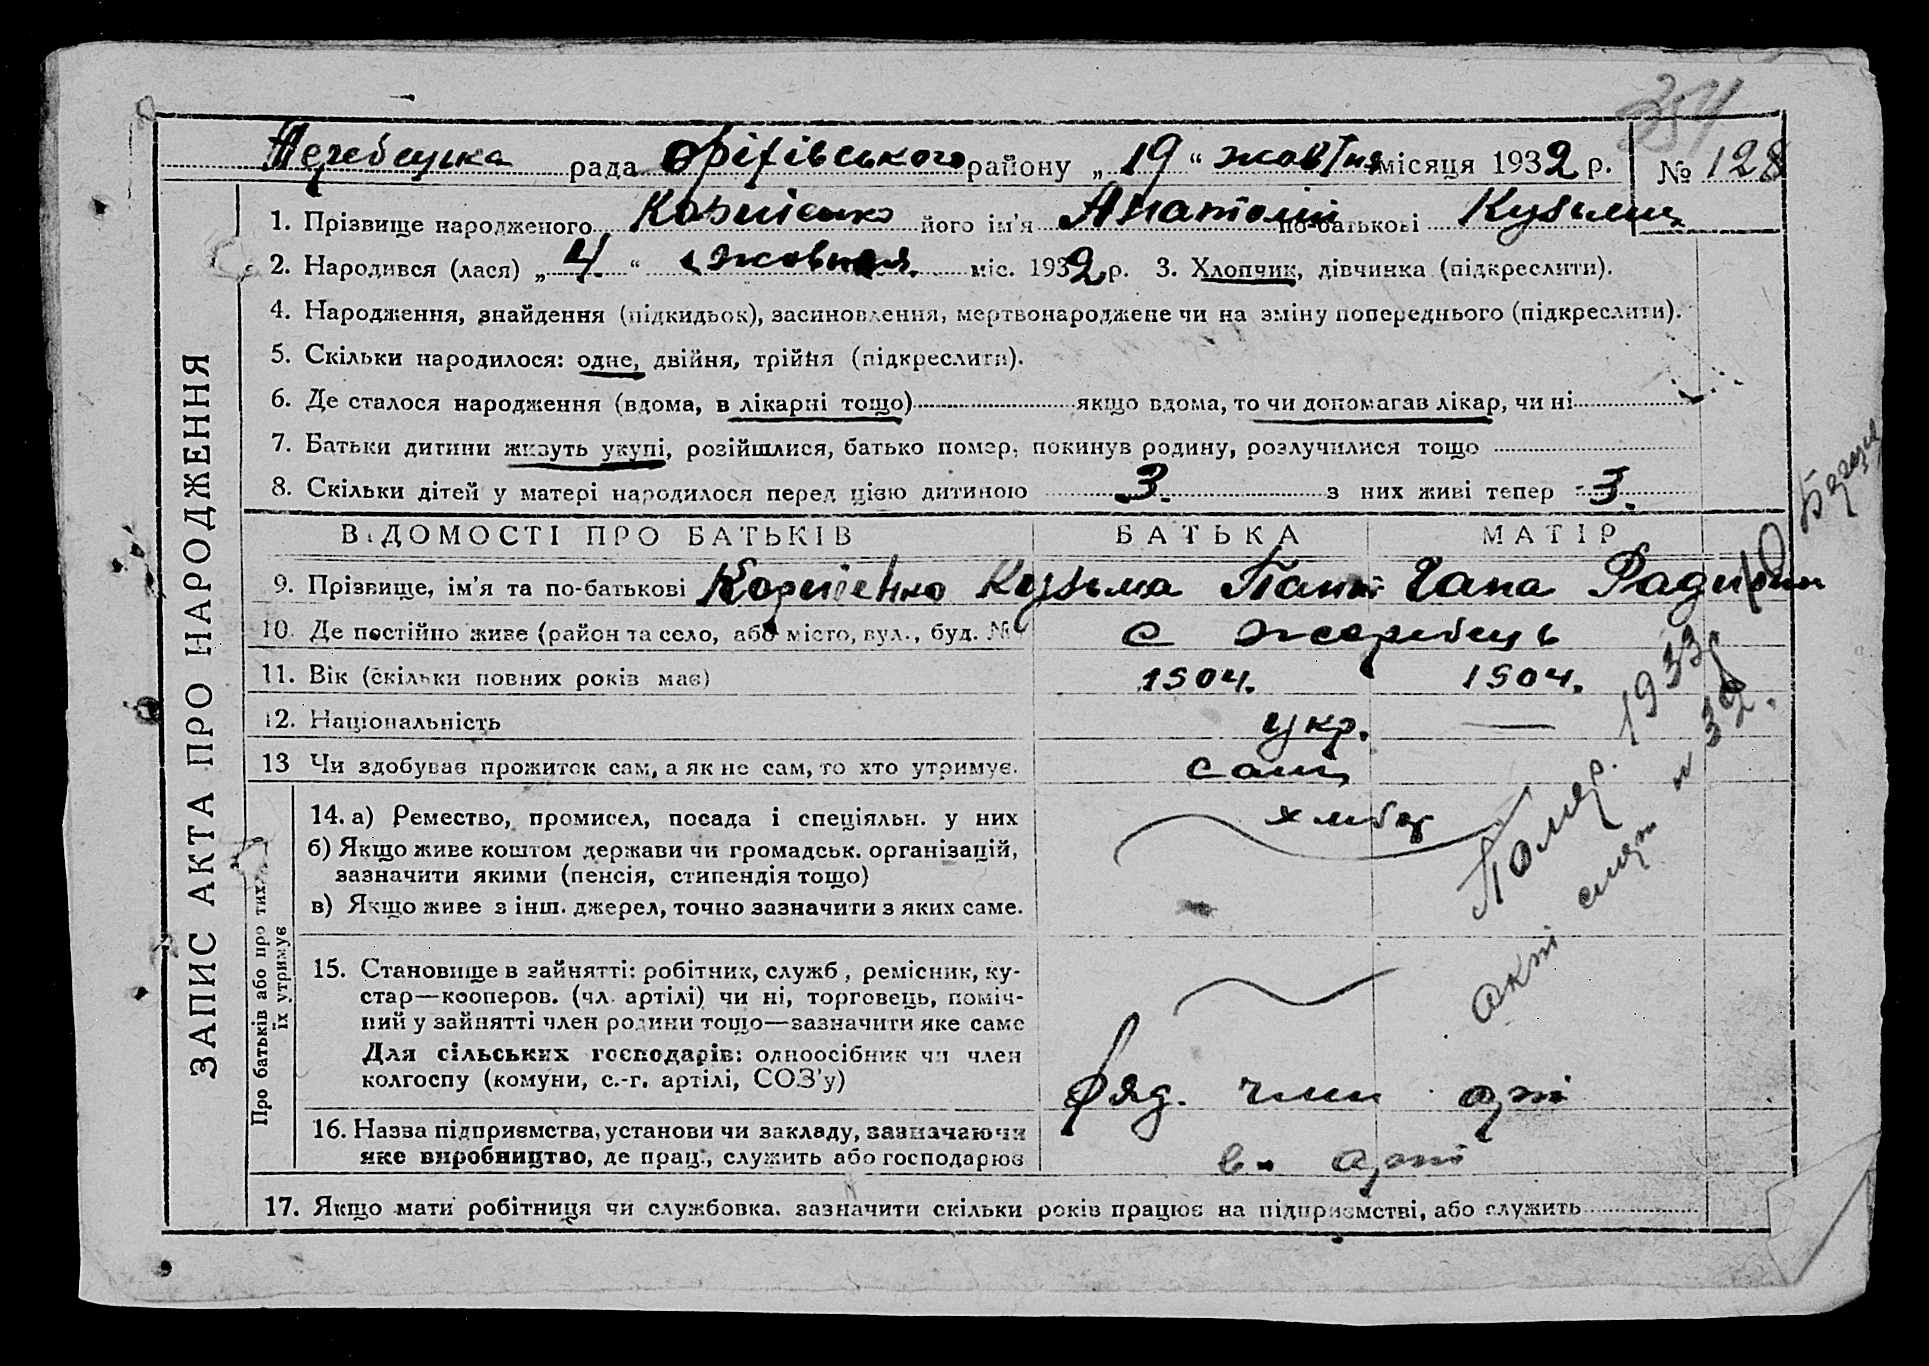 354
Жеребецька рада Оріхівського району „ 19 “ жовтня місяця 1932 р. № 128
1. Прізвище народженого Корнієнко його ім'я Анатолій по-батькові Кузьмич
2. Народився (лася) „ 4 “ жовтня міс. 1932 р. 3. Хлопчик, дівчинка (підкреслити).
4. Народження, знайдення (підкидьок), засиновлення, мертвонароджене чи на зміну попереднього (підкреслити).
5. Скільки народилося: одне, двійня, трійня (підкреслити).
6. Де сталося народження (вдома, в лікарні тощо) якщо вдома, то чи допомагав лікар, чи ні
7. Батьки дитини живуть укупі, розійшлися, батько помер, покинув родину, розлучилися тощо
8. Скільки дітей у матері народилося перед цією дитиною 3. з них живі тепер 3.
ВІДОМОСТІ ПРО БАТЬКІВ БАТЬКА МАТІР
9. Прізвище, ім'я та по-батькові Корнієнко Кузьма Гапа
10. Де постійно живе (район та село, або місто, вул., буд. № с Жеребець
11. Вік (скільки повних років має) 1904. 1904.
12. Національність укр. —
13 Чи здобував прожиток сам, а як не сам, то хто утримує.
14. а) Ремество, промисел, посада і спеціяльн. у них хліб
б) Якщо живе коштом держави чи громадськ. організацій,
зазначити якими (пенсія, стипендія тощо)
в) Якщо живе з інш. джерел, точно зазначити з яких саме.
15. Становище в зайнятті: робітник, служб , ремісник, ку-
стар—кооперов. (чл. артілі) чи ні, торговець, поміч-
ний у зайнятті член родини тощо—зазначити яке саме
Для сільських господарів: одноосібник чи член
колгоспу (комуни, с.-г. артілі, СОЗ'у)
ряд. член арт
16. Назва підприємства, установи чи закладу, зазначаючи
яке виробництво, де прац., служить або господарює в арт
17. Якщо мати робітниця чи службовка. зазначити скільки років працює на підприємстві, або служить
ЗАПИС АКТА ПРО НАРОДЖЕННЯ
Про батьків або про тих
їх утримує
Помер. 1933р 10
акт смерт № 32.